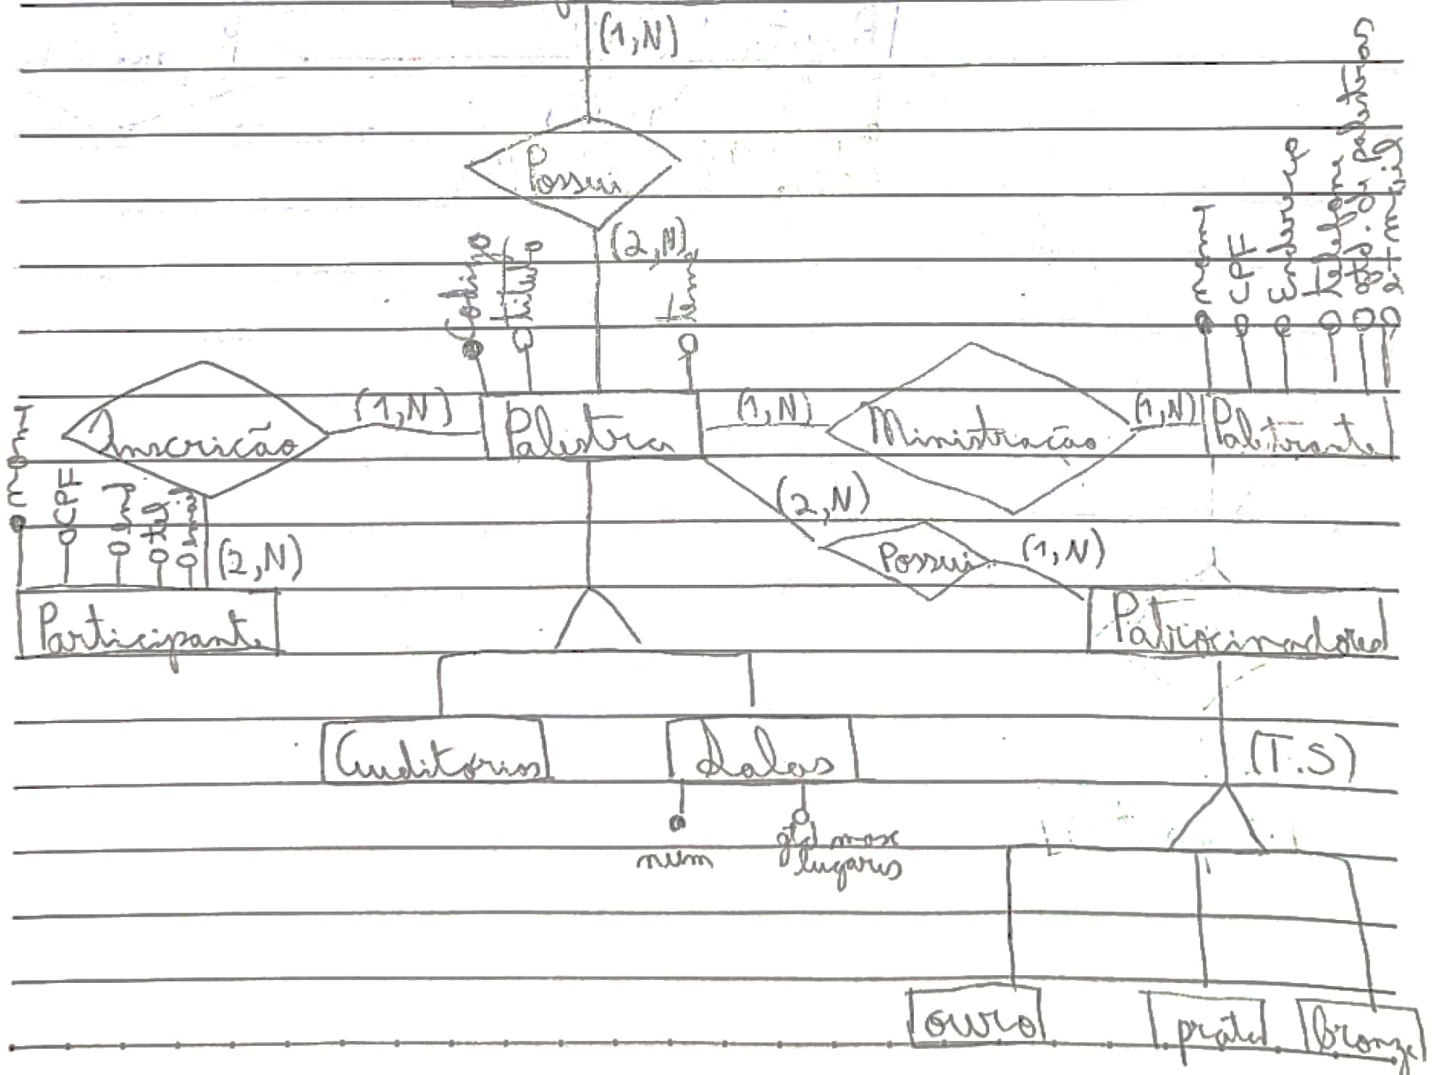 (1,N)
Possui
(2,N)
Codigo
titulo
tema
CPF
Telefone
E-mail
Inscrição
(1,N)
Palestra
(1,N)
Ministração
(1,N)
Palestrante
CPF
tel
(2,N)
(2,N)
Possui
(1,N)
Participante
Patrocinadores
Auditórios
Salas
(T.S)
num
qtd max
lugares
ouro
prata
bronze